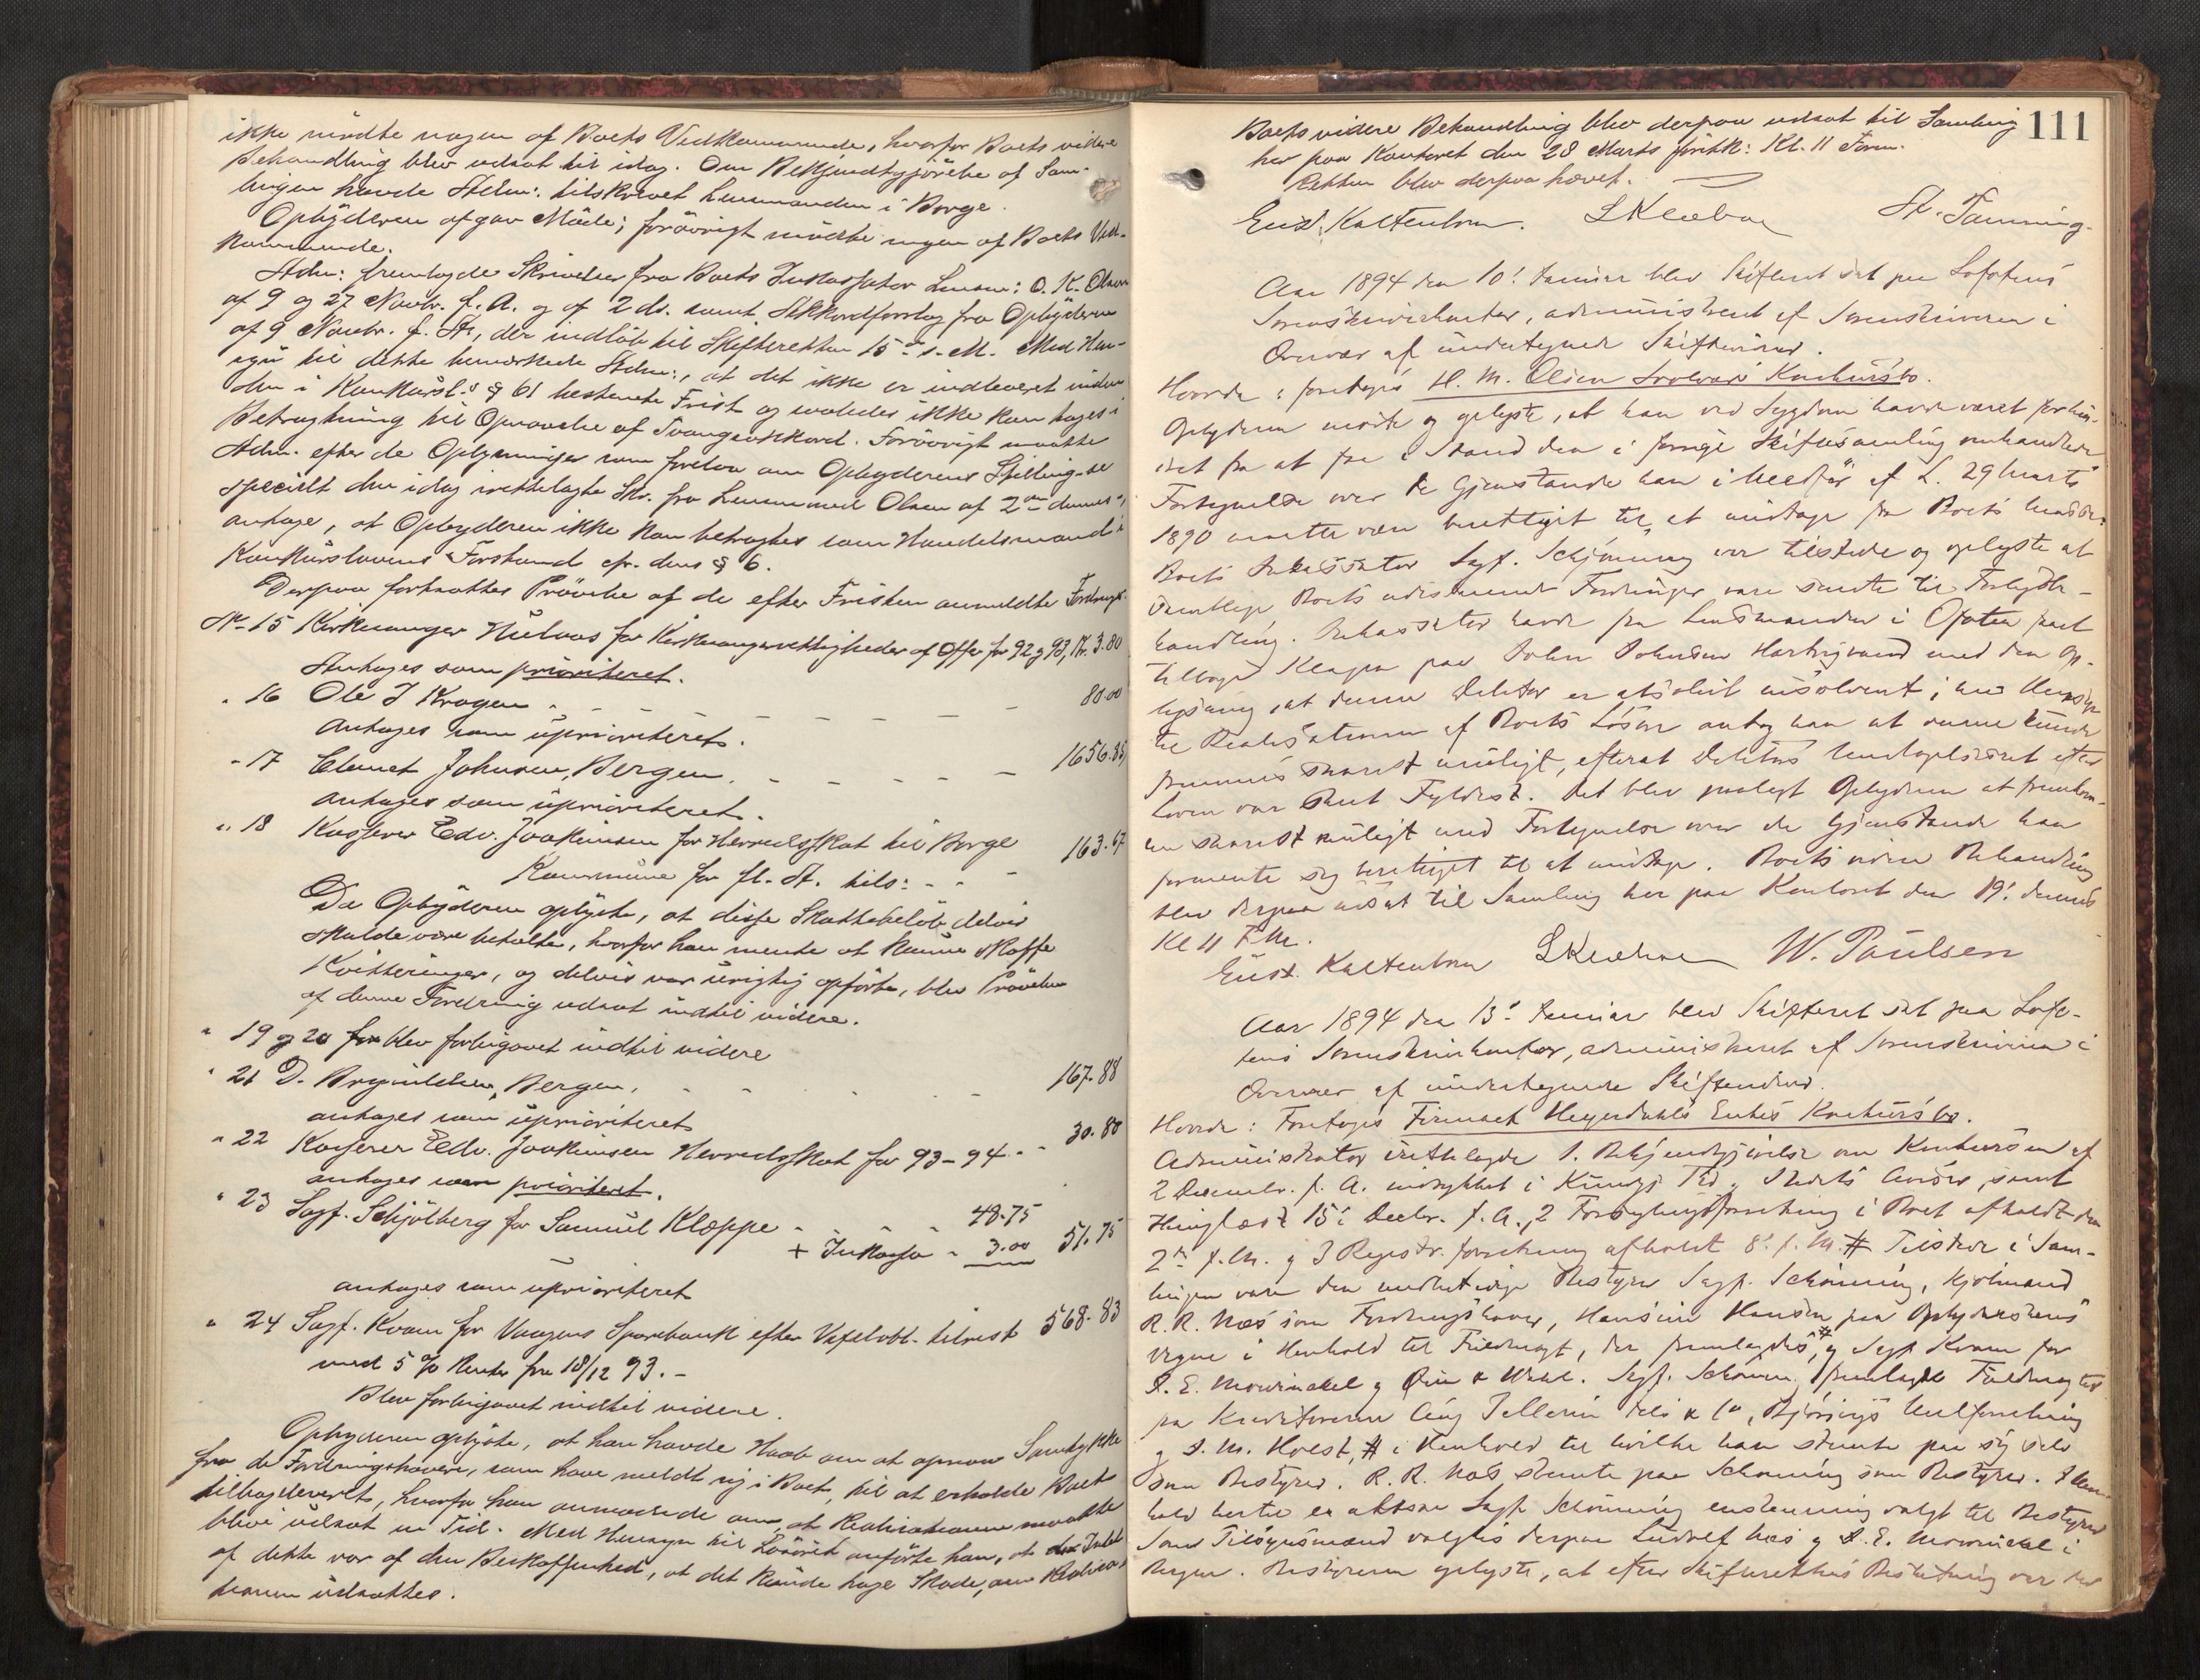 ikke mødte nogen af Boets Vedkommende, hvorfor Boets videre
Behandling blev udsat til idag. Om Bekjendtgjørelse af Sam-
lingen havde Adm: tilskrevet Lensmanden i Borge.
Opbyderen afgav Møde; forøvrigt mødte ingen af Boets Ved-
kommende.
Adm: fremlagde Skrivelser fra Boets Inkassator Lensm: O. K. Olsen
af 9 og 27 Novbr. f. A. og af 2 ds. samt Akkordforslag fra Opbyderen
af 9 Novbr. f. A., der indløb til Skifteretten 15de s. M. Med Hen-
syn til dette bemærkede Adm:, at det ikke er indleveret inden
den i Konkursl.s § 61 bestemte Frist og saaledes ikke kan tages i
Betragtning til Opnaaelse af Tvangsakkord. Forøvrigt maatte
Adm. efter de Oplysninger som forelaa om Opbyderens Stilling-se
specielt den idag irettelagte Skr. fra Lensmand Olsen af 2den dennes-,
antage, at Opbyderen ikke kan betragtes som Handelsmand i
Konkurslovens Forstand cfr. dens § 6.
Derpaa fortsattes Prøvelse af de efter Fristen anmeldte Fordringer.
No 15 Kirkesanger Hulaas for Kirkesangerrettigheder af Offer for 92 og 93, Kr. 3.80
Antages som prioriteret.
" 16 Ole J Kragen 80.00
antages som uprioriteret.
" 17 Clemet Johnsen, Bergen 1656.85
antages som uprioriteret.
" 18 Kasserer Edv. Joakimsen for Herredsskat til Borge
Kommune for fl. A. tils: 163.67
Da Opbyderen oplyste, at disse Skattebeløb delvis
skulde være betalte, hvorfor han mente at kunne skaffe
Kvitteringer, og delvis var urigtig opførte, blev Prøvelse
af denne Fordring udsat indtil videre.
" 19 og 20 blev forbigaaet indtil videre
" 21 D. Brynildsen, Bergen, 167.88
antages som uprioriteret
" 22 Kasserer Edv. Joakimsen Herredsskat for 93-94 30.80
antages som prioriteret.
" 23 Sagf. Schjølberg for Samuel Kleppe 48.75
+ Inkasso 3.00 51.75
antages som uprioriteret
" 24 Sagf. Kvam for Vaagens Sparebank efter Vexelobl. tilrest 568.83
med 5 % Renter fra 18/12 93.-
Blev forbigaaet indtil videre.
Opbyderen oplyste, at han havde Haab om at opnaa Samtykke
fra de Fordringshavere, som have meldt sig i Boet, til at erholde Boet
tilbageleveret, hvorfor han anmodede om, at Realisationen maatte
blive udsat en Tid. Med Hensyn til Løsøret anførte han, at
af dette var af den Beskaffenhed, at det kunde tage Skade, om Realisa-
tionen udsattes.
111
Boets videre Behandling blev derpaa udsat til Samling
her paa Kontoret den 28 Marts førstk: Kl. 11 Form.
Retten blev derpaa hævet.
Eust. Kaltenborn. St. Tanning
Aar 1894 den 10! Januar blev Skifteret sat paa Lofotens
Sorenskriverkontor, administreret af Sorenskriveren i
Overvær af undertegnede Skiftevidner.
Hvorda: foretoges H. M. Olsen Svolvær Konkursbo.
Opbyderen mødte og oplyste, at han ved Sygdom havde været forhin-
dret fra at faa i Stand den i forrige Skiftesamling omhandlede
Fortegnelse over de Gjenstande han i Medfør af L. 29 Marts
1890 maatte være berettiget til at undtage fra Boets Masse.
Boets Inkassator Sagf. Schjønning var tilstede og oplyste at
samtlige Boets udestaaende Fordringer vare sendte til Forligs-
handling. Inkassator havde fra Lensmanden i Ofoten faaet
tilbage Klagen paa John Johnsen Hartvigvand med den Op-
lysning, at denne Debitor er absolut insolvent; med Hensyn
til Realisationen af Boets Løsøre antog han at denne kunde
fremmes snarest muligt, efterat Debitors Undtagelsesret efter
Loven var skeet Fyldest. Det blev paalagt Opbyderen at fremkom-
me snarest muligt med Fortegnelse over de Gjenstande han
formente sig berettiget til at undtage. Boets videre Behandling
blev derpaa udsat til Samling her paa Kontoret den 19! dennes
Kl 11 Fm.
Eust. Kaltenborn W. Paulsen
Aar 1894 den 13! Januar blev Skifteret sat paa Lofo-
tens Sorenskriverkontor, administreret af Sorenskriveren i
Overvær af undertegnede Skiftevidner.
Hvorda: Foretoges Firmaet Heyerdahls Enkes Konkursbo.
Administrator irettelagde 1. Bekjendtgjørelse om Konkursen af
2 Decembr. f. A. indrykket i Kundgj. Tid. og Stedets Aviser, samt
thinglæst 15! Decbr. f. A., 2 Forseglingsforretning i Boet afholdt den
2den f. M. og 3 Registr. forretning afholdt 8! f. M. # Tilstede i Sam-
lingen vare den midlertidige Bestyrer Sagf. Schønning, Kjøbmand
R. R. Næs som Fordringshaver, Hansine Hansen paa Opbyderskens
vegne i Henhold til Fuldmagt, der fremlagdes, # og Sagf. Kvam for
S. E. Mowinckel og . Sagf. Schønning fremlagde Fuldmagter
fra Kreditorerne Aug Pellerin fils & Co,
og S. M. Holst, # i Henhold til hvilke han stemte paa sig selv
som Bestyrer. R. R. Næs stemte paa Schønning som Bestyrer. I Hen-
hold hertil er altsaa Sagf. Schønning enstemmig valgt til Bestyrer
Som Tilsynsmænd valgtes derpaa Ludolf Næs og S. E. Mowinckel i
Bergen. Bestyreren oplyste, at efter Skifterettens Beslutning var der